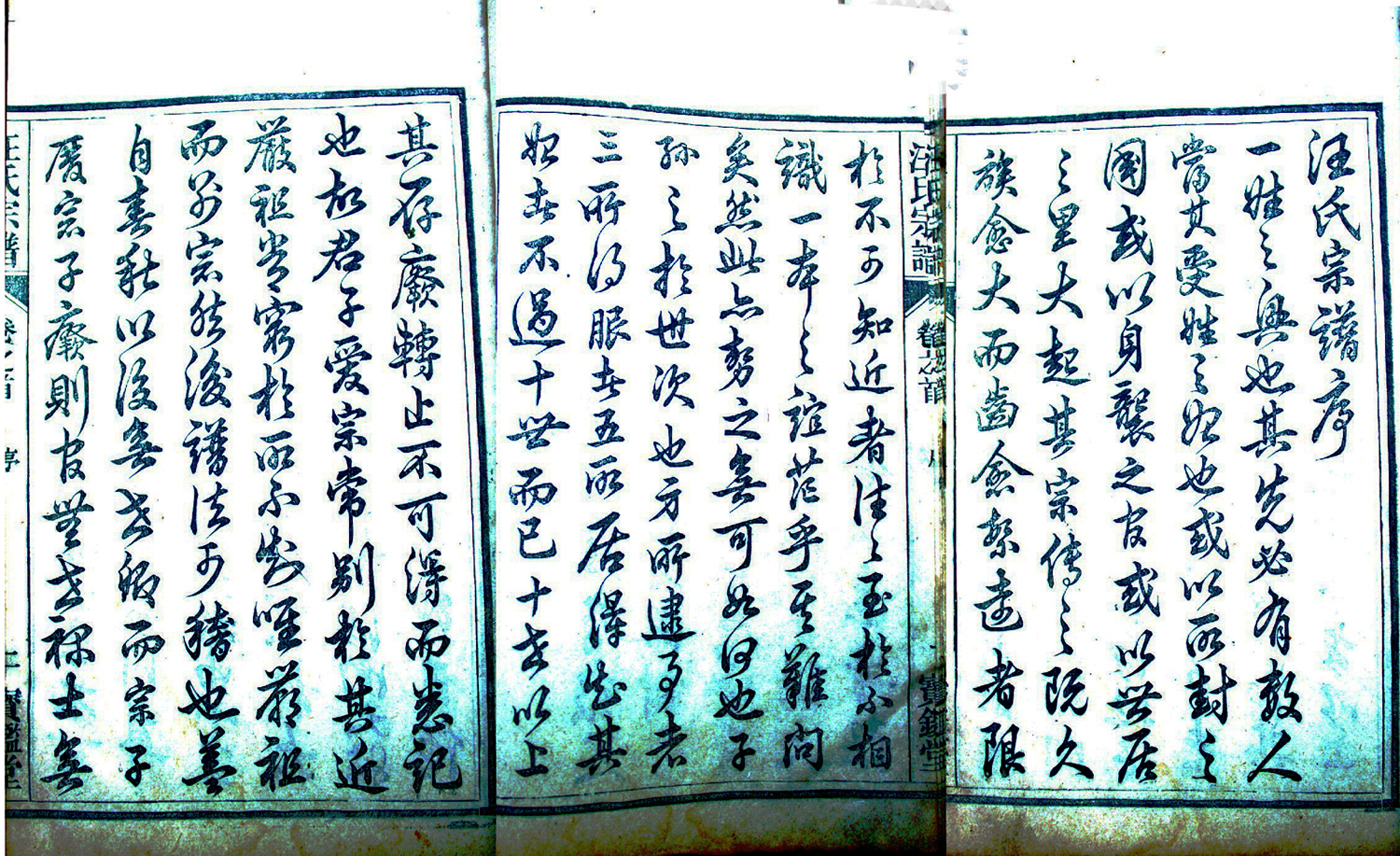 汪氏宗譜序
一姓之興也其先必有數人
當其受姓之始也或以所封之
國或以身襲之官或以世居
之里大起其宗傳之既久
族愈大而齒愈繁遠者限
汪氏宗譜 卷之首 寶鑑堂
於不可知近者往往至於不相
識一本之誼茫乎其難問
矣然此亦勢之無可如何也子
孫之於世次也方所逮事者
三所得服者五所居得知其
始者不過十世而已十世以上
其存廢轉止不可得而悉記
也故君子愛宗常別於其近
嚴祖常窮於所不知唯嚴祖
而別宗然後譜法可稽也蓋
自春秋以後無世卿而宗子
廢宗子廢則官無世祿士無
汪氏宗譜 卷之首 序 寶鑑堂